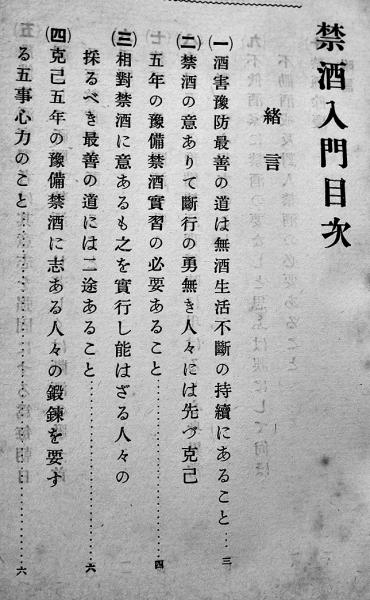 禁酒入門目次
緒言
(一)酒害豫防最善の道は無酒生活不斷の持續にあること…三
(二)禁酒の意ありて斷行の勇無き人々には先づ克己
五年の豫備禁酒實習の必要あること…………四
(三)相對禁酒に意あるも之を實行し能はざる人々の
採るべき最善の道には二途あること…………六
(四)克己五年の豫備禁酒に志ある人々の鍛鍊を要す
る五事心力のこと……………………六